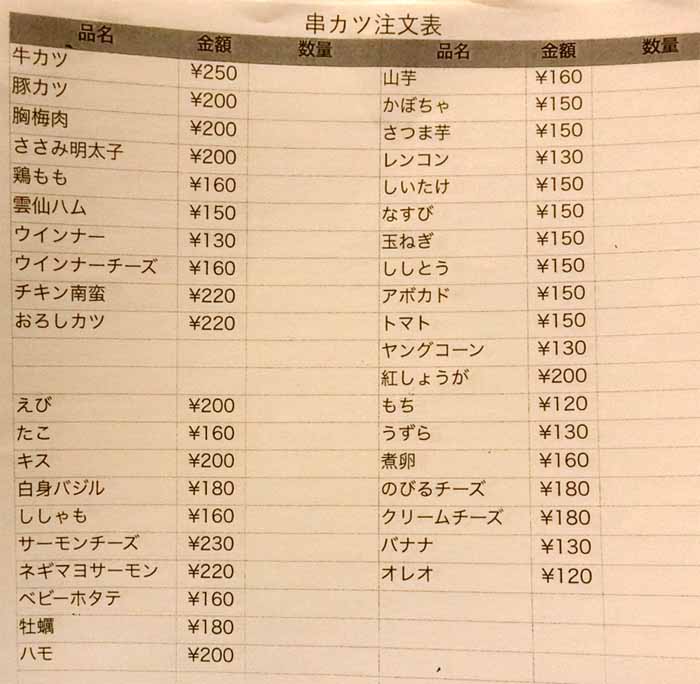 串カツ注文表
品名 金額 数量 品名 金額 数量
牛カツ ¥250 山芋 ¥160
豚カツ ¥200 かぼちゃ ¥150
胸梅肉 ¥200 さつま芋 ¥150
ささみ明太子 ¥200 レンコン ¥130
鶏もも ¥160 しいたけ ¥150
雲仙ハム ¥150 なすび ¥150
ウインナー ¥130 玉ねぎ ¥150
ウインナーチーズ ¥160 ししとう ¥150
チキン南蛮 ¥220 アボカド ¥150
おろしカツ ¥220 トマト ¥150
ヤングコーン ¥130
紅しょうが ¥200
えび ¥200 もち ¥120
たこ ¥160 うずら ¥130
キス ¥200 煮卵 ¥160
白身バジル ¥180 のびるチーズ ¥180
ししゃも ¥160 クリームチーズ ¥180
サーモンチーズ ¥230 バナナ ¥130
ネギマヨサーモン ¥220 オレオ ¥120
ベビーホタテ ¥160
牡蠣 ¥180
ハモ ¥200